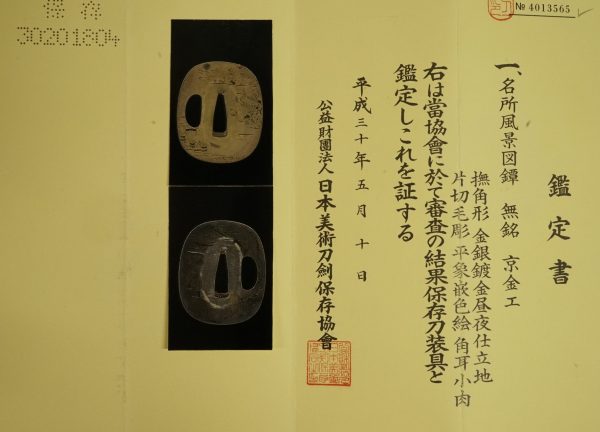 鑑定書
一、名所風景図鐔 無銘 京金工
撫角形 金銀鍍金昼夜仕立地
片切毛彫 平象嵌色絵 角耳小肉
右は當協會に於て審査の結果保存刀装具と
鑑定しこれを証する
平成三十年五月十日
公益財團法人 日本美術刀劍保存協會
№ 4013565
保存
30201804